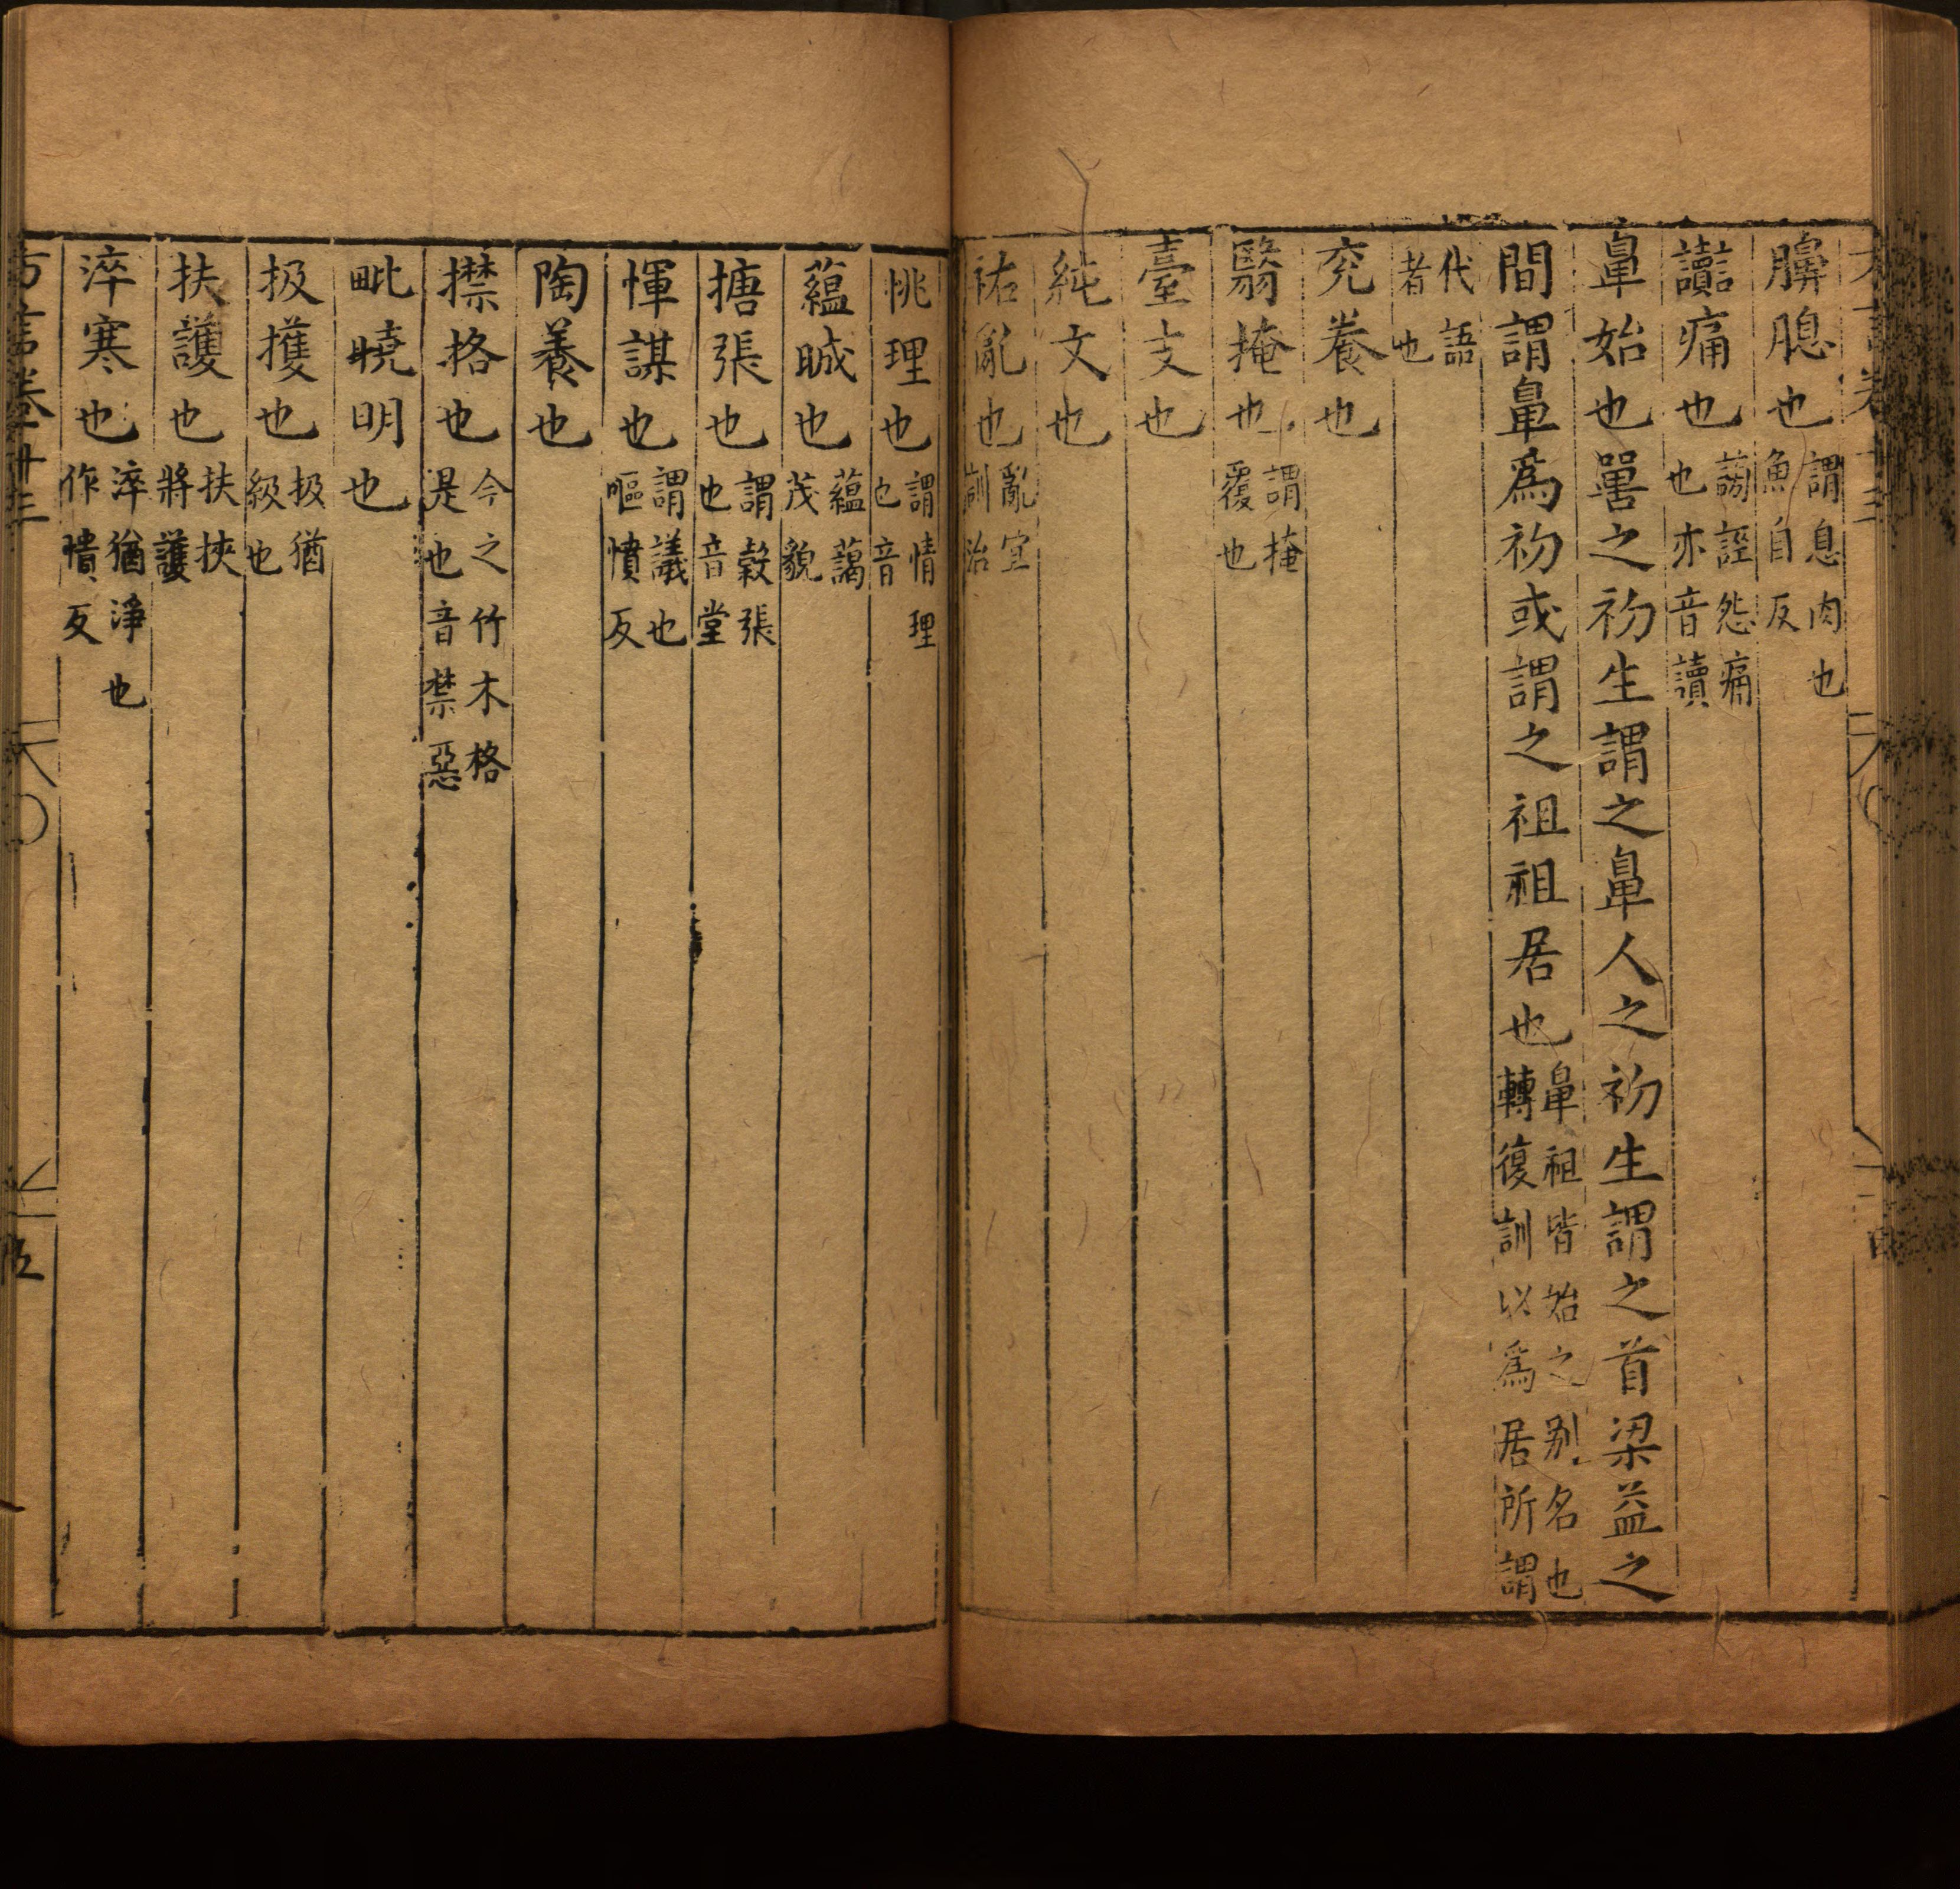 膞腮也謂息肉也魚自反
讟痛也謗誣怨痛也亦音讀
鼻始也嘼之初生謂之鼻人之初生謂之首梁益之
間謂鼻爲初或謂之祖祖居也鼻祖皆始之別名也轉復訓以爲居所謂
代語者也
兖養也
翳掩也謂掩覆也
臺支也
純文也
祐亂也亂宜訓治
恌理也謂情理也音
蘊晠也蘊藹茂貌
搪張也謂彀張也音堂
惲謀也謂議也嘔憤反
陶養也
㩒挌也今之竹木格是也音禁惡
毗曉明也
扱擭也扱猶級也
扶護也扶挾將護
淬寒也淬猶淨也作憒反
方言卷十三
五